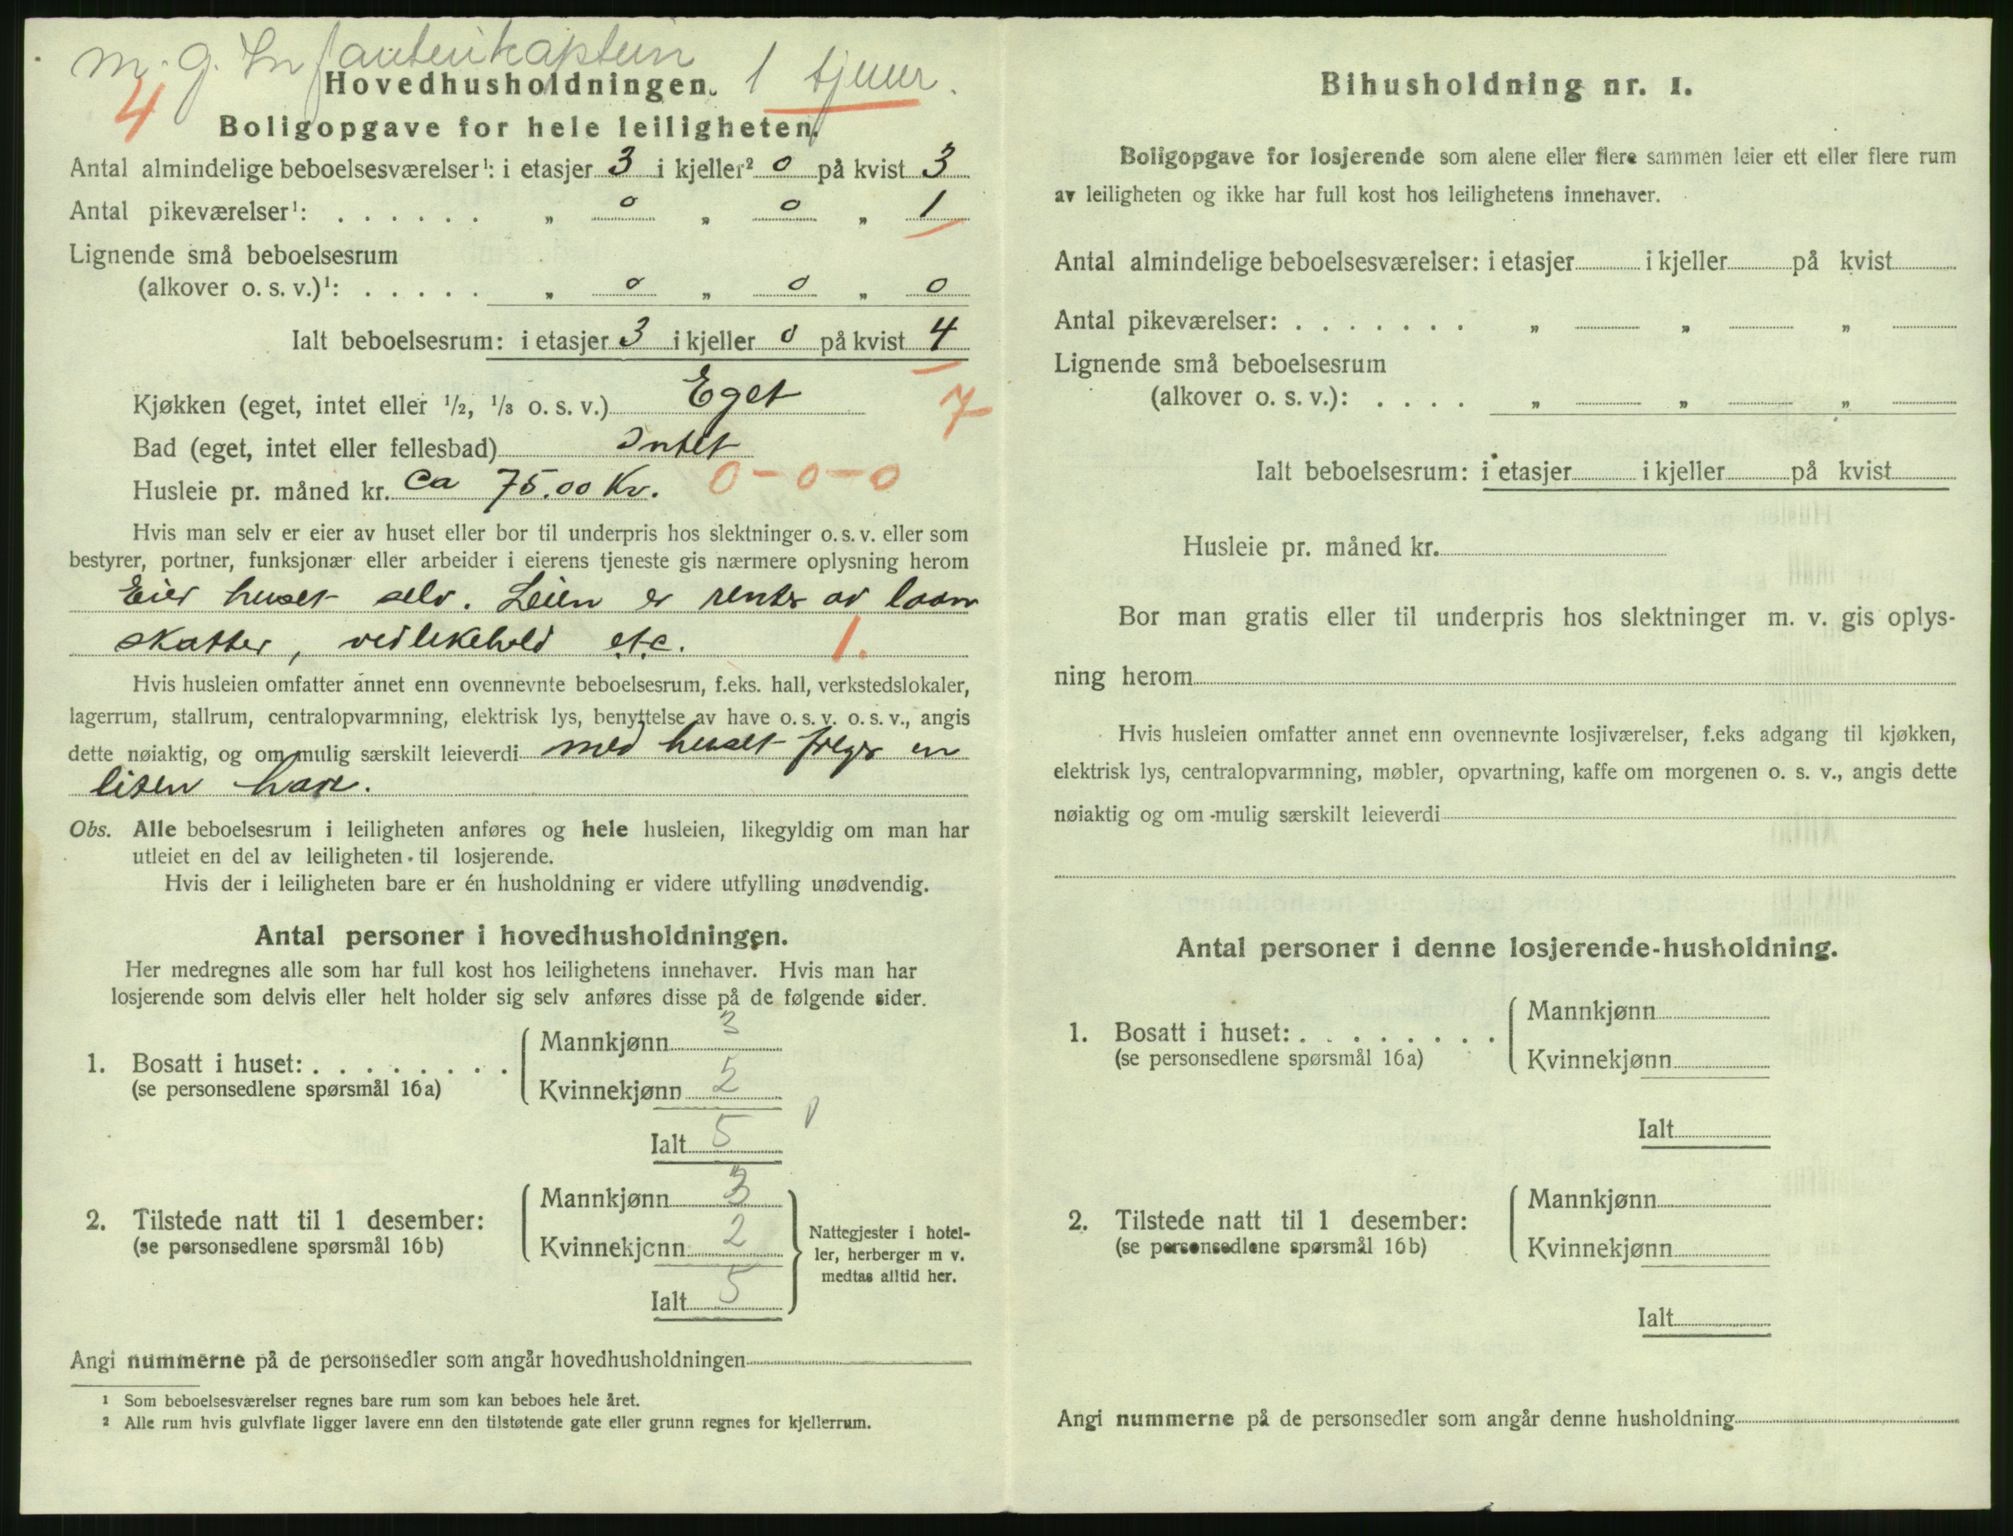 m. g. Infanterikaptein
Hovedhusholdningen. 1 tjener.
4
Boligopgave for hele leiligheten.
Antal almindelige beboelsesværelser¹: i etasjer 3 i kjeller² 0 på kvist 3
Antal pikeværelser¹: . . . . . . „ 0 „ 0 „ 1
Lignende små beboelsesrum
(alkover o. s. v.)¹: . . . . . „ 0 „ 0 „ 0
Ialt beboelsesrum: i etasjer 3 i kjeller 0 på kvist 4
Kjøkken (eget, intet eller 1/2, 1/3 o. s. v.) Eget 7
Bad (eget, intet eller fellesbad) Intet
Husleie pr. måned kr. Ca 75.00 Kr. 0-0-0
Hvis man selv er eier av huset eller bor til underpris hos slektninger o. s. v. eller som
bestyrer, portner, funksjonær eller arbeider i eierens tjeneste gis nærmere oplysning herom
Eier huset selv. Leien er renter av laan
skatter, vedlikehold etc. 1.
Hvis husleien omfatter annet enn ovennevnte beboelsesrum, f.eks. hall, verkstedslokaler,
lagerrum, stallrum, centralopvarmning, elektrisk lys, benyttelse av have o. s. v. o. s. v., angis
dette nøiaktig, og om mulig særskilt leieverdi med huset følger en
liten have.
Obs. Alle beboelsesrum i leiligheten anføres og hele husleien, likegyldig om man har
utleiet en del av leiligheten til losjerende.
Hvis der i leiligheten bare er én husholdning er videre utfylling unødvendig.
Antal personer i hovedhusholdningen.
Her medregnes alle som har full kost hos leilighetens innehaver. Hvis man har
losjerende som delvis eller helt holder sig selv anføres disse på de følgende sider.
1. Bosatt i huset: . . . . . . . .
(se personsedlene spørsmål 16a)
Mannkjønn 3
Kvinnekjønn 2
Ialt 5
2. Tilstede natt til 1 desember:
(se personsedlene spørsmål 16b)
Mannkjønn 3
Kvinnekjønn 2
Ialt 5
Nattegjester i hotel-
ler, herberger m v.
medtas alltid her.
Angi nummerne på de personsedler som angår hovedhusholdningen
¹ Som beboelsesværelser regnes bare rum som kan beboes hele året.
² Alle rum hvis gulvflate ligger lavere enn den tilstøtende gate eller grunn regnes for kjellerrum.
Bihusholdning nr. 1.
Boligopgave for losjerende som alene eller flere sammen leier ett eller flere rum
av leiligheten og ikke har full kost hos leilighetens innehaver.
Antal almindelige beboelsesværelser: i etasjer i kjeller på kvist
Antal pikeværelser: . . . . . . . „ „ „
Lignende små beboelsesrum
(alkover o. s. v.): . . . . „ „ „
Ialt beboelsesrum: i etasjer i kjeller på kvist
Husleie pr. måned kr.
Bor man gratis eller til underpris hos slektninger m. v. gis oplys-
ning herom
Hvis husleien omfatter annet enn ovennevnte losjiværelser, f.eks adgang til kjøkken,
elektrisk lys, centralopvarmning, møbler, opvartning, kaffe om morgenen o. s. v., angis dette
nøiaktig og om -mulig særskilt leieverdi
Antal personer i denne losjerende-husholdning.
1. Bosatt i huset: . . . . . . . .
(se personsedlene spørsmål 16a)
Mannkjønn
Kvinnekjønn
Ialt
2. Tilstede natt til 1 desember:
(se personsedlene spørsmål 16b)
Mannkjønn
Kvinnekjønn
Ialt
Angi nummerne på de personsedler som angår denne husholdning